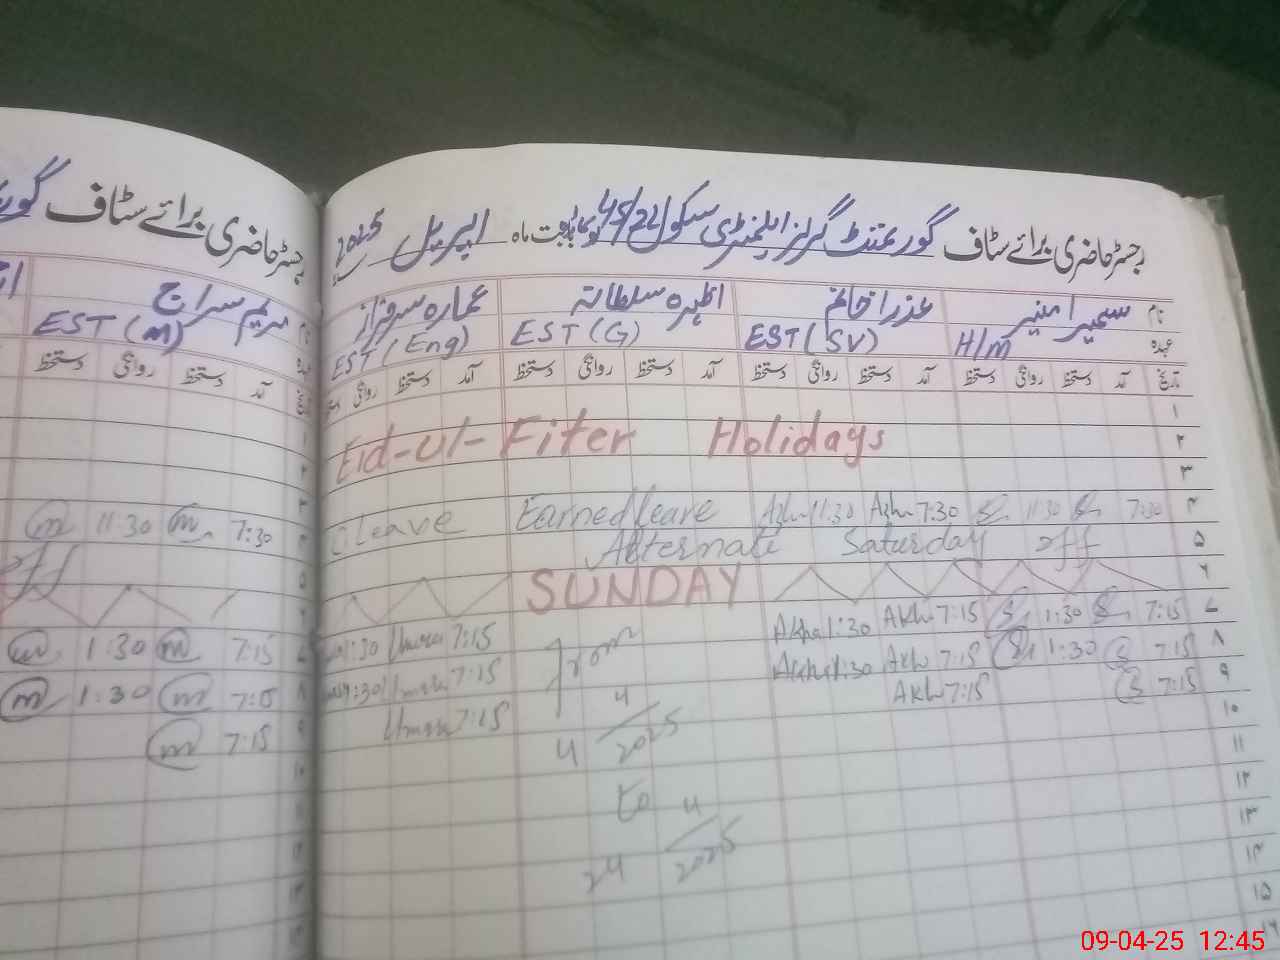 رجسٹر حاضری برائے سٹاف گورنمنٹ گرلز ایلیمنٹری سکول بابت ماہ اپریل 2025
رجسٹر حاضری برائے سٹاف
نام سمیرا منیر عذرا خانم اظہرہ سلطانہ عمارہ سرفراز
نام مریم سراج
عہدہ H/M EST (SV) EST (G) EST (Eng)
عہدہ EST (M)
تاریخ آمد دستخط روانگی دستخط آمد دستخط روانگی دستخط آمد دستخط روانگی دستخط آمد دستخط روانگی
تاریخ آمد دستخط روانگی دستخط
۱
Eid-ul-Fiter Holidays ۲
۳
C leave Earned leave 11:30 7:30 11:30 7:30 ۴
m 11:30 m 7:30
Alternate Saturday off ۵
off
SUNDAY ۶
1:30 7:15 from 1:30 7:15 1:30 7:15 ۷
m 1:30 m 7:15
1:30 7:15 1:30 7:15 1:30 7:15 ۸
m 1:30 m 7:15
7:15 7:15 7:15 ۹
m 7:15
4 4/2025 ۱۰
۱۱
to ۱۲
24 4/2025 ۱۳
۱۴
۱۵
۱۶
09-04-25 12:45